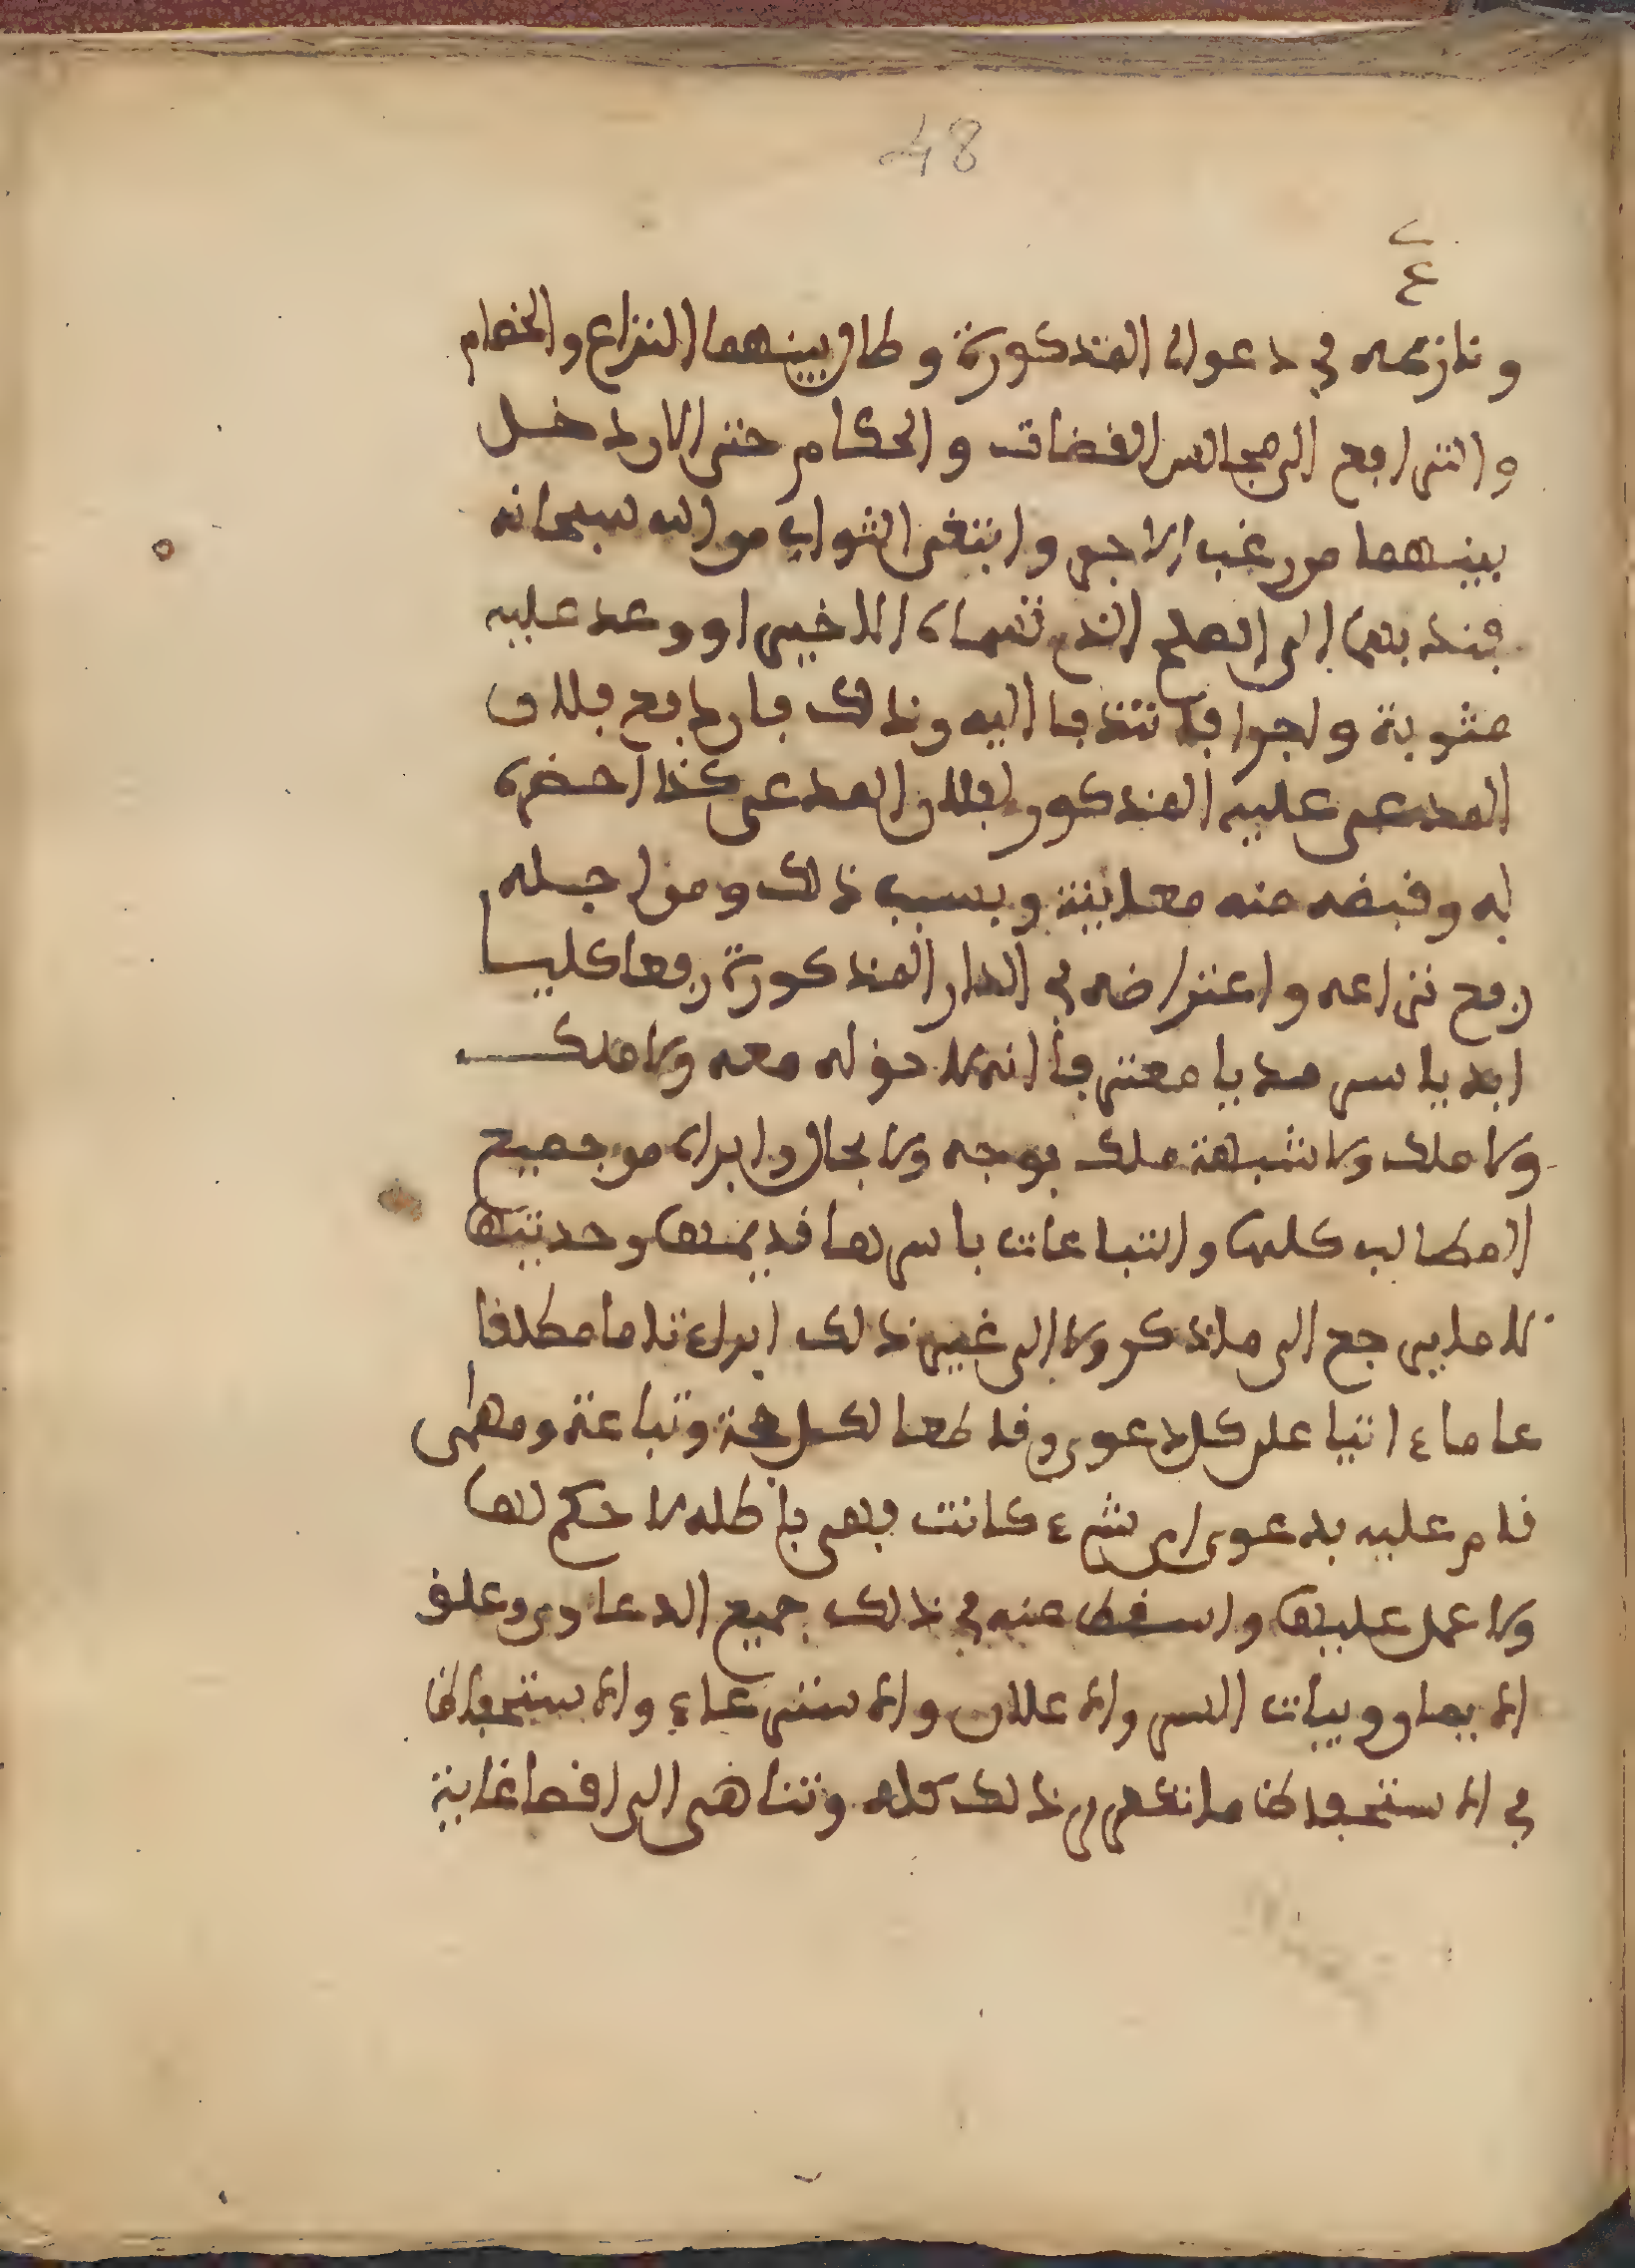 48
ع
ونازعه في دعواه المذكورة وطال بينهما النزاع والخصام
والترافع الى مجالس القضات والحكام حتى الان دخل
بينهما من رغب الاجر وابتغى الثواب من الله سبحانه
فندبهما الى الصلح الذي سماه الله خيرا ووعد عليه
مثوبة واجرا فانتدبا اليه وذلك بان دفع فلان
المدعى عليه المذكور لفلان المدعي كذا احضره
له وقبضه منه معاينة وبسبب ذلك ومن اجله
رفع نزاعه واعتراضه في الدار المذكورة رفعا كليا
ابديا سرمديا معترفا انه لا حق له معه ولا ملك
ولا ملك ولا شبهة ملك بوجه ولا بحال وابراه من جميع
المطالب كلها والتباعات باسرها قديمها وحديثها
لا ما يرجع الى ما ذكر ولا الى غير ذلك ابراء تاما مطلقا
عاما ءاتيا على كل دعوى وقاطعا لكل حجة وتباعة ومهمى
قام عليه بدعوى اي شيء كانت فهي باطله لا حكم لها
ولا عمل عليها واسقط عنه في ذلك جميع الدعاوي وعلق
الايمان وبيات السر والاعلان والاسترعاء والاستحفاظ
في الاستحفاظ ما تكرر ذلك كله وتناهى الى اقصا غاية